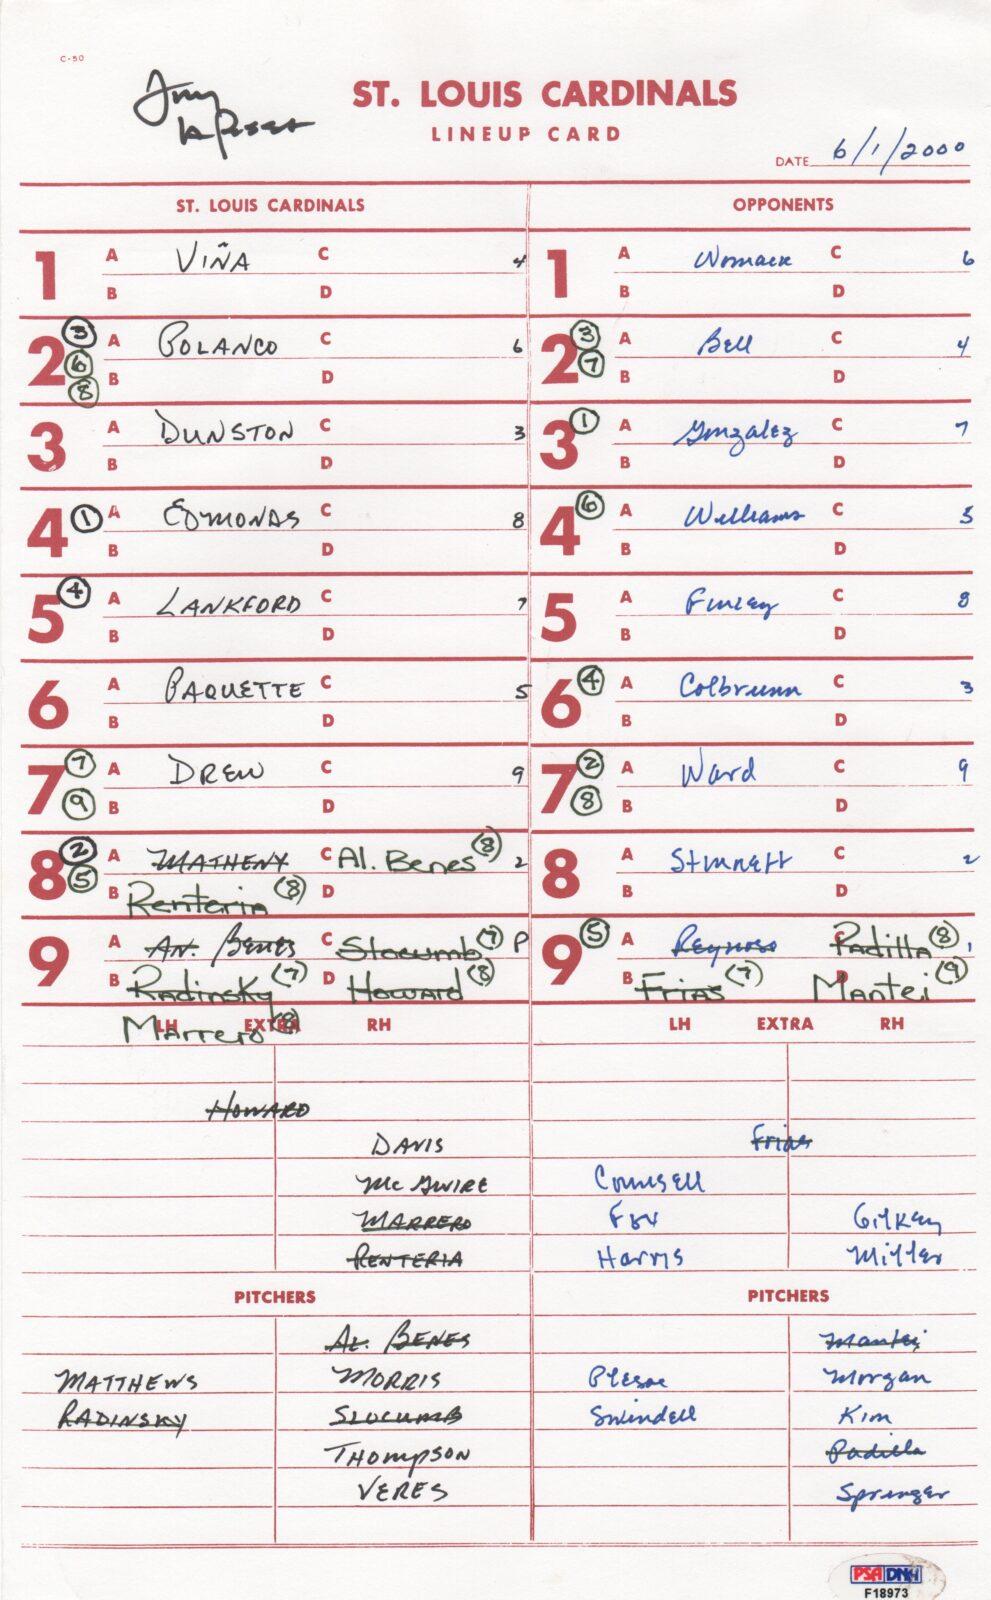 C-50
Tony La Russa
ST. LOUIS CARDINALS
LINEUP CARD
DATE 6/1/2000
ST. LOUIS CARDINALS OPPONENTS
1 A VIÑA C 4 1 A Womack C 6
B D B D
2 3 6 8 A POLANCO C 6 2 3 7 A Bell C 4
B D B D
3 A DUNSTON C 3 3 1 A Gonzalez C 7
B D B D
4 1 A EDMONDS C 8 4 6 A Williams C 5
B D B D
5 4 A LANKFORD C 7 5 A Finley C 8
B D B D
6 A PAQUETTE C 5 6 4 A Colbrunn C 3
B D B D
7 7 9 A DREW C 9 7 2 8 A Ward C 9
B D B D
8 2 5 A MATHENY C Al. Benes (8) 2 8 A Stinnett C 2
B Renteria (8) D B D
9 A AN. BENES C Slocumb (7) P 9 5 A Reynoso C Padilla (8) 1
B Radinsky (7) D Howard (8) B Frias (7) Mantei (9)
Marrero (8)
LH EXTRA RH LH EXTRA RH
HOWARD
DAVIS Frias
McGWIRE Counsell
MARRERO Fox Gilkey
RENTERIA Harris Miller
PITCHERS PITCHERS
AL. BENES Mantei
MATTHEWS MORRIS Plesac Morgan
RADINSKY SLOCUMB Swindell Kim
THOMPSON Padilla
VERES Springer
PSA DNA
F18973